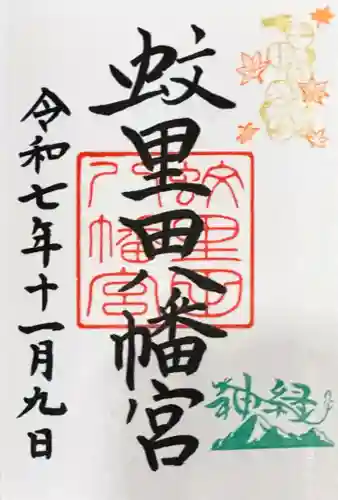 蛟里田八幡宮
令和七年十一月九日
蛟里田八幡宮
神経